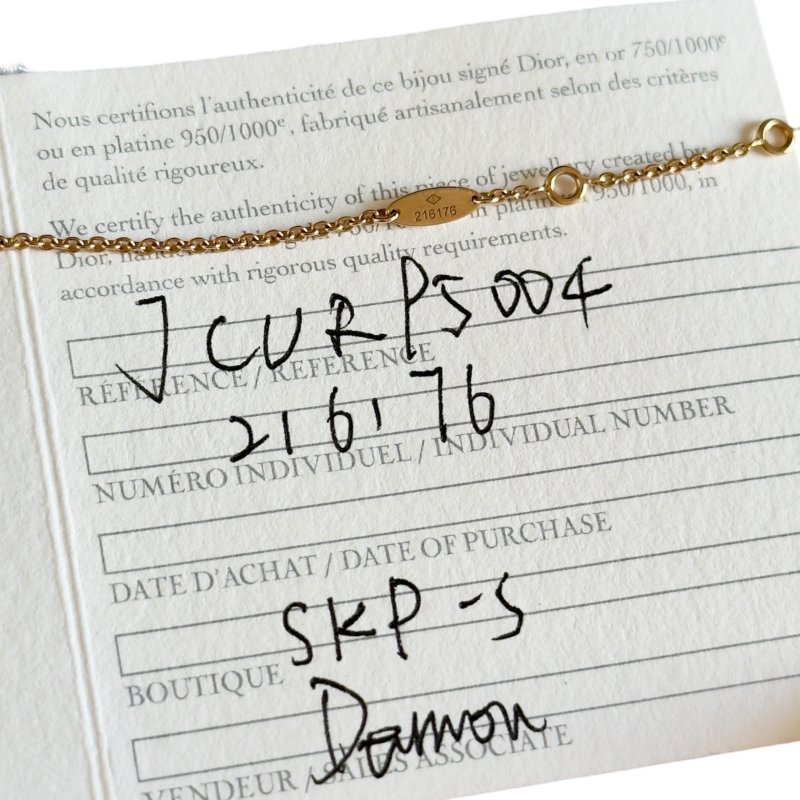 Nous certifions l'authenticité de ce bijou signé Dior, en or 750/1000e
ou en platine 950/1000e, fabriqué artisanalement selon des critères
de qualité rigoureux.
We certify the authenticity of this piece of jewellery created by
Dior, in platinum 950/1000, in
accordance with rigorous quality requirements.
216176
JCURP5004
RÉFÉRENCE / REFERENCE
216176
NUMÉRO INDIVIDUEL / INDIVIDUAL NUMBER
DATE D'ACHAT / DATE OF PURCHASE
SKP-S
BOUTIQUE
Damon
VENDEUR / SALES ASSOCIATE